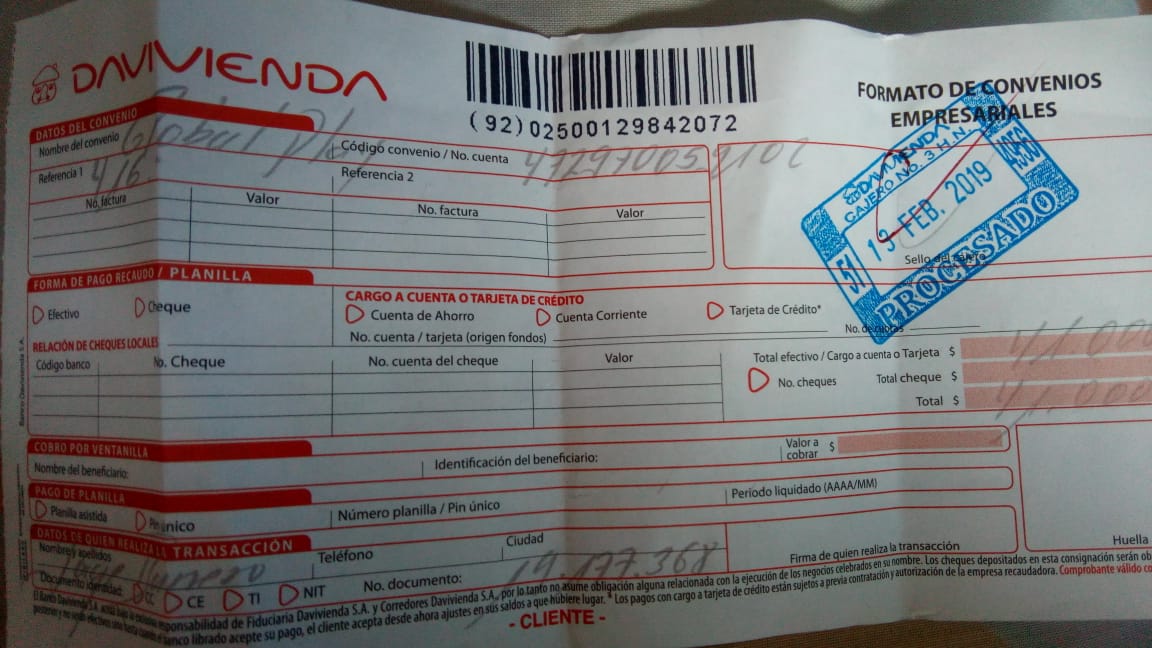 DAVIVIENDA
(92)02500129842072
FORMATO DE CONVENIOS
EMPRESARIALES
DATOS DEL CONVENIO
Nombre del convenio Global Play
Código convenio / No. cuenta
Referencia 1 416
Referencia 2
No. factura Valor No. factura Valor
DAVIVIENDA
CAJERO No. 3 H.N.
13 FEB. 2019
51
PROCESADO
Sello del cajero
FORMA DE PAGO RECAUDO / PLANILLA
Efectivo Cheque
CARGO A CUENTA O TARJETA DE CRÉDITO
Cuenta de Ahorro Cuenta Corriente Tarjeta de Crédito*
No. cuenta / tarjeta (origen fondos) No. de cuotas
RELACIÓN DE CHEQUES LOCALES
Código banco No. Cheque No. cuenta del cheque Valor
Total efectivo / Cargo a cuenta o Tarjeta $ 41.000
No. cheques Total cheque $
Total $ 41.000
Banco Davivienda S.A.
COBRO POR VENTANILLA
Nombre del beneficiario: Identificación del beneficiario: Valor a cobrar $
PAGO DE PLANILLA
Planilla asistida Pin único Número planilla / Pin único Período liquidado (AAAA/MM)
DATOS DE QUIEN REALIZA LA TRANSACCIÓN
Nombre y apellidos Teléfono Ciudad
Firma de quien realiza la transacción Huella
Documento identidad: CC CE TI NIT No. documento: 19.177.368
El Banco Davivienda S.A. actúa bajo la exclusiva responsabilidad de Fiduciaria Davivienda S.A. y Corredores Davivienda S.A., por lo tanto no asume obligación alguna relacionada con la ejecución de los negocios celebrados en su nombre. Los cheques depositados en esta consignación serán
banco librado acepte su pago, el cliente acepta desde ahora ajustes en sus saldos a que hubiere lugar. * Los pagos con cargo a tarjeta de crédito están sujetos a previa contratación y autorización de la empresa recaudadora. Comprobante válido
- CLIENTE -